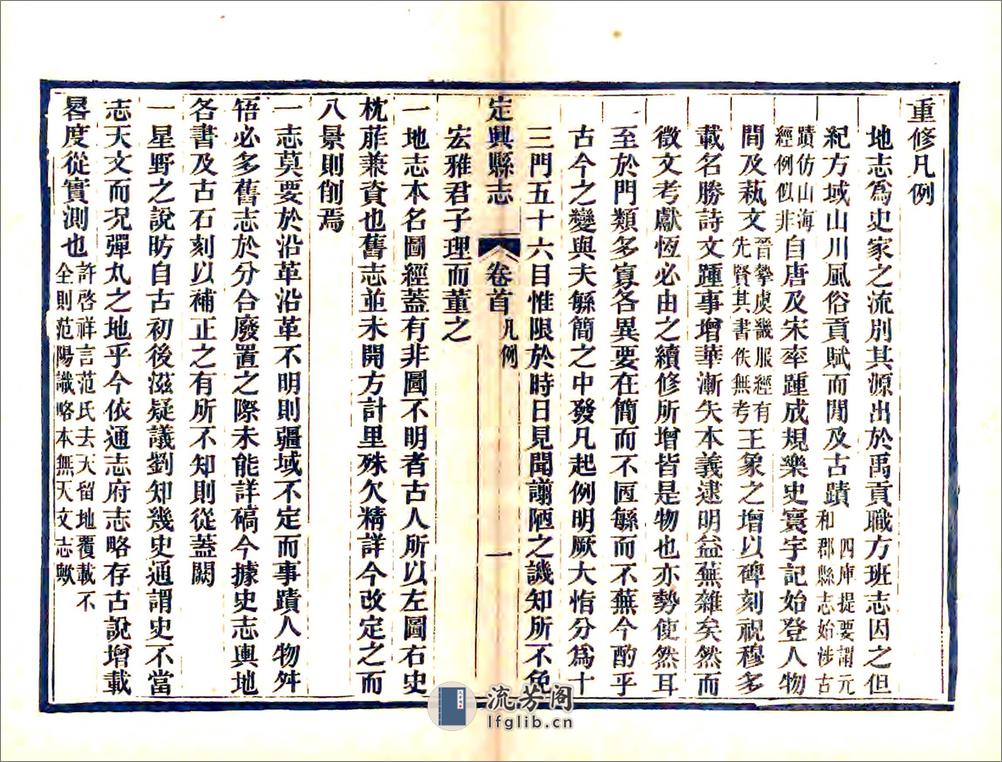 重修凡例
地志爲史家之流別其源出於禹貢職方班志因之但
紀方域山川風俗貢賦而閒及古蹟四庫提要謂元和郡縣志始涉古
蹟仿山海經例似非自唐及宋率踵成規樂史寰宇記始登人物
間及蓺文晉摯虞畿服經有先賢其書佚無考王象之增以碑刻祝穆多
載名勝詩文踵事增華漸失本義逮明益蕪雜矣然而
徵文考獻恆必由之續修所增皆是物也亦勢使然耳
至於門類多寡各異要在簡而不匧緐而不蕪今酌乎
古今之變與夫緐簡之中發凡起例明厥大恉分爲十
三門五十六目惟限於時日見聞謭陋之譏知所不免
宏雅君子理而董之
一地志本名圖經蓋有非圖不明者古人所以左圖右史
枕葄兼資也舊志並未開方計里殊欠精詳今改定之而
八景則削焉
一志莫要於沿革沿革不明則疆域不定而事蹟人物舛
牾必多舊志於分合廢置之際未能詳碻今據史志輿地
各書及古石刻以補正之有所不知則從蓋闕
一星野之說昉自古初後滋疑議劉知幾史通謂史不當
志天文而況彈丸之地乎今依通志府志略存古說增載
晷度從實測也許啓祥言范氏去天留地覆載不全則范陽識略本無天文志歟
定興縣志
卷首 凡例
一
流芳阁
lfglib.cn